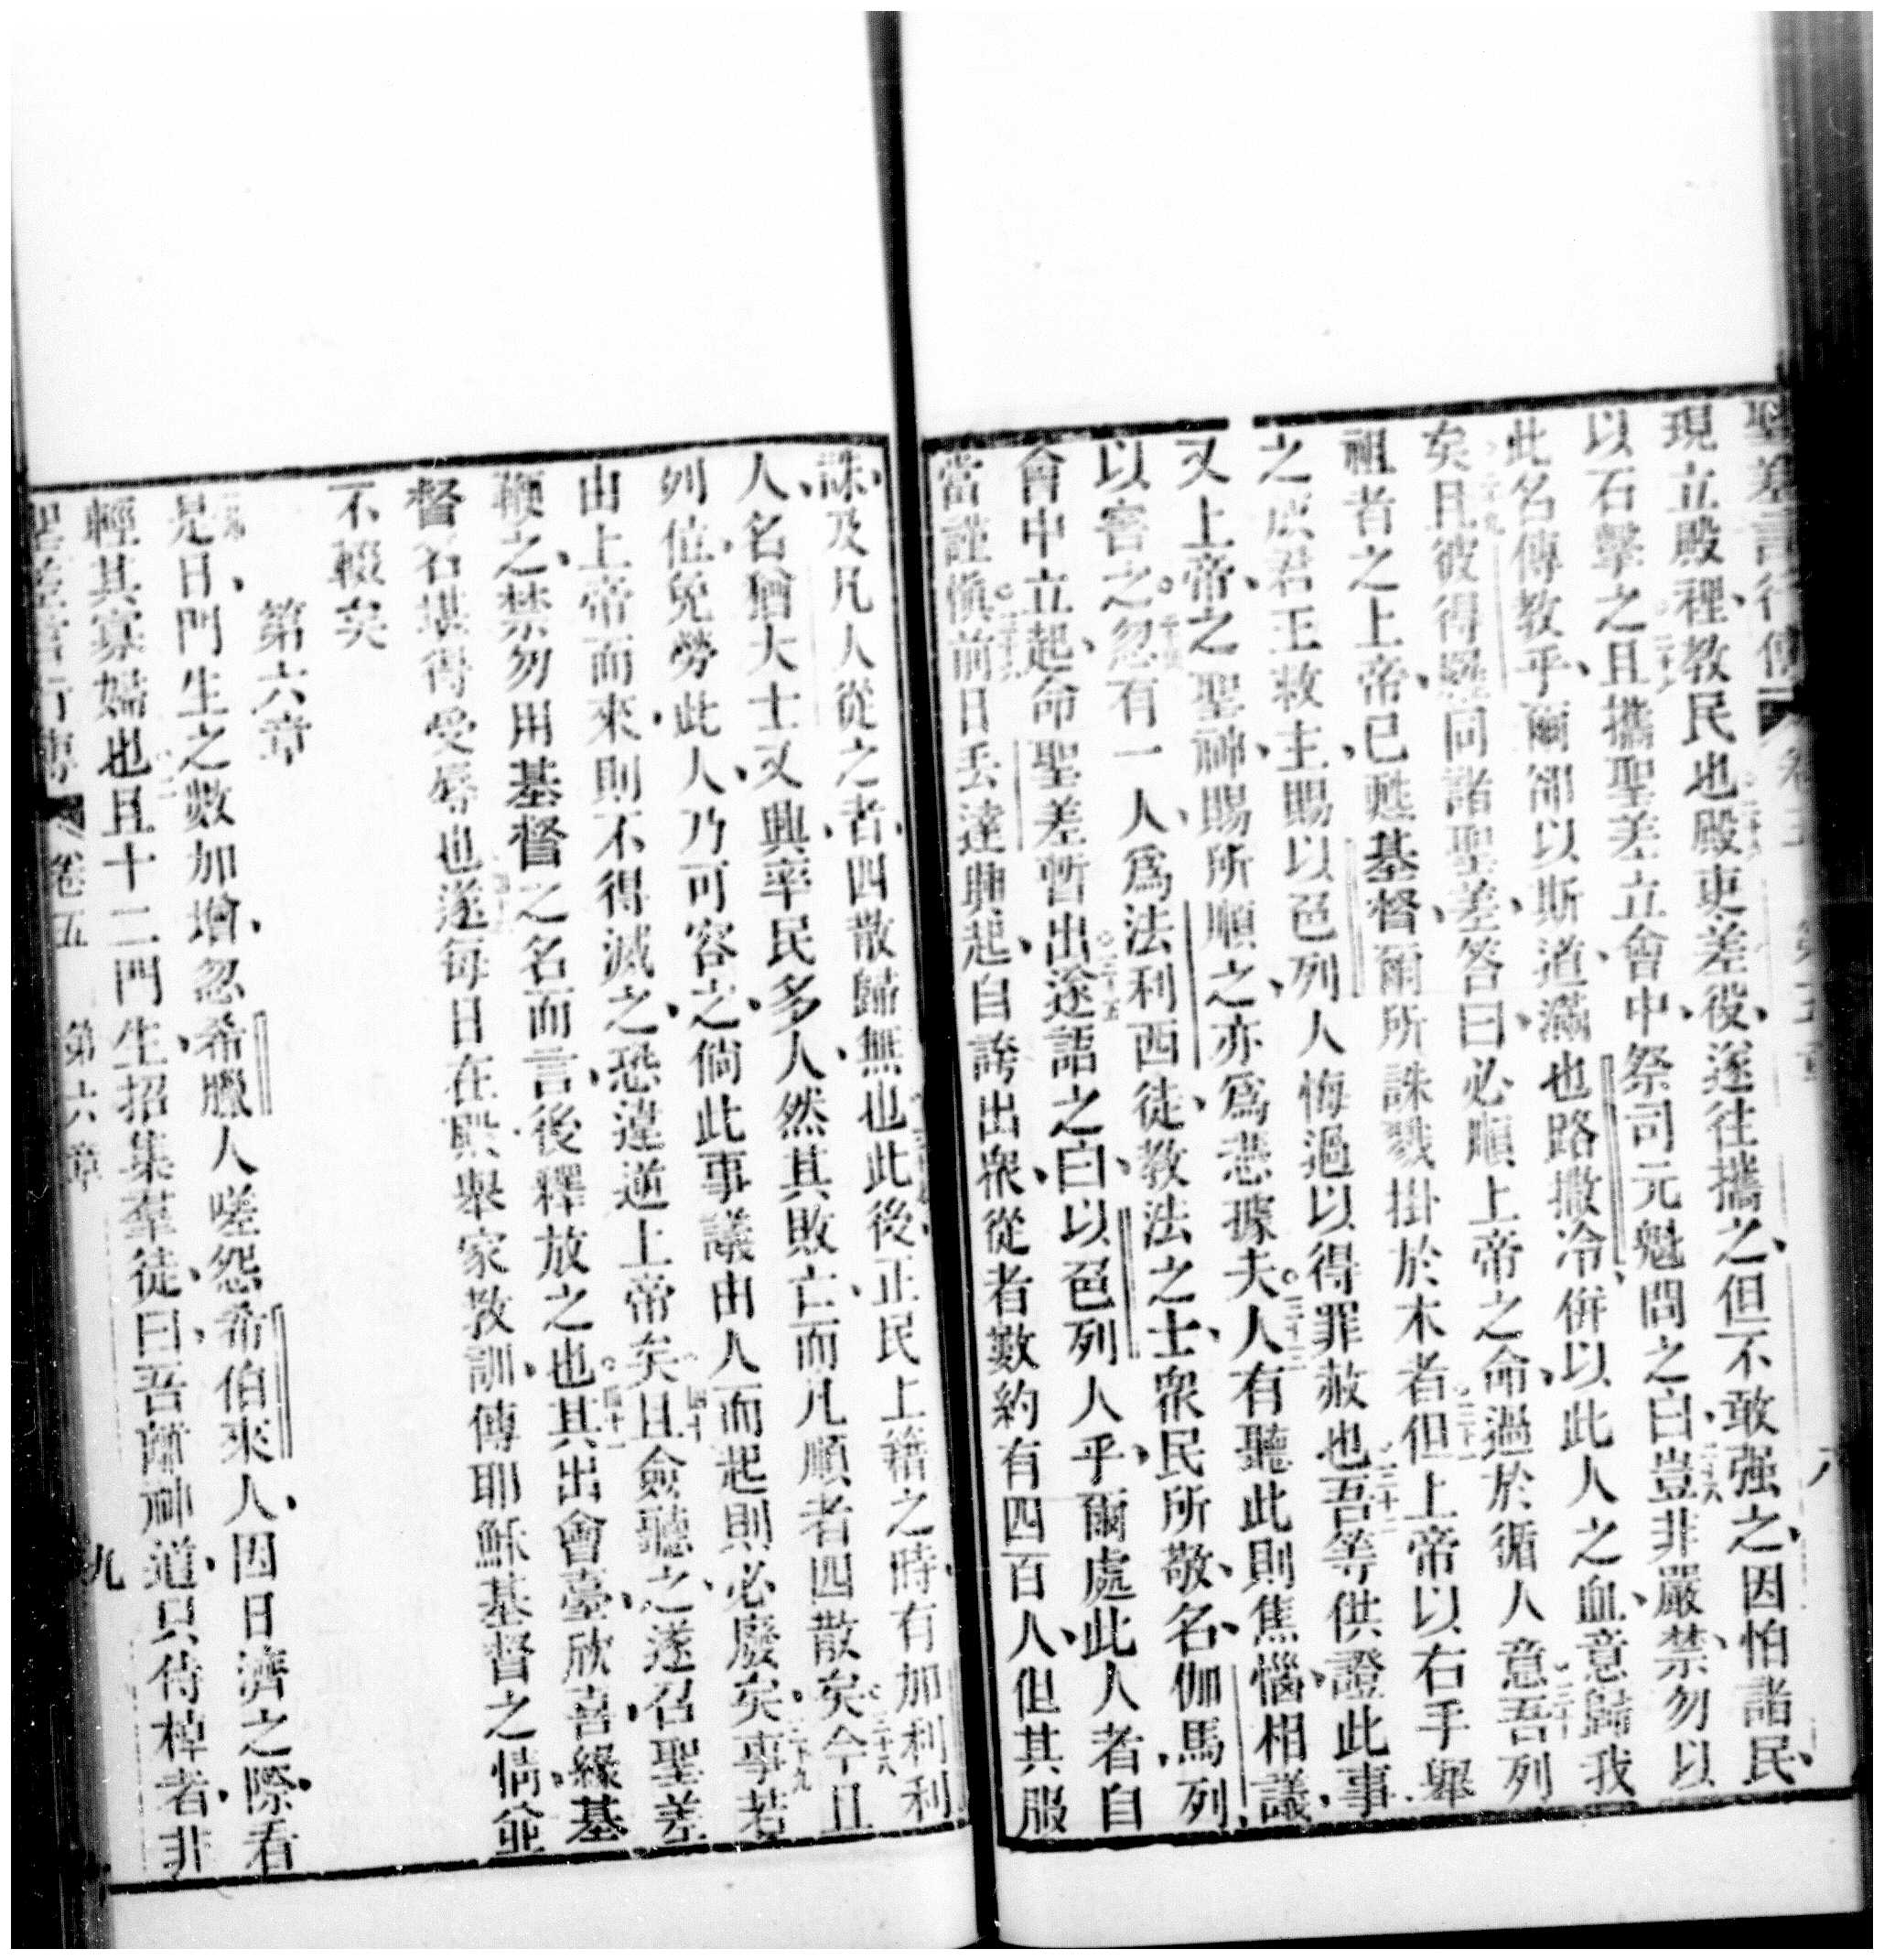 聖差言行傳 卷五 第五章 八
現立殿裡教民也二十六殿吏差役遂往攜之但不敢强之因怕諸民
以石擊之二十七且攜聖差立會中祭司元魁問之曰二十八豈非嚴禁勿以
此名傳教乎爾卻以斯道滿也路撒冷併以此人之血意歸我
矣二十九且彼得曁同諸聖差答曰必順上帝之命過於循人意三十吾列
祖者之上帝已甦基督爾所誅戮掛於木者三十一但上帝以右手舉
之爲君王救主賜以色列人悔過以得罪赦也三十二吾等供證此事
又上帝之聖神賜所順之亦爲憑據夫三十三人有聽此則焦惱相議
以害之三十四忽有一人爲法利西徒教法之士衆民所敬名伽馬列
會中立起命聖差暫出三十五遂語之曰以色列人乎爾處此人者自
當謹愼三十六前日丟達興起自誇出衆從者數約有四百人但其服
誅及凡人從之者四散歸無也此後正民上籍之時有加利利
人名猶大士又興率民多人然其敗亡而凡順者四散矣三十八今且
列位免勞此人乃可容之倘此事議由人而起則必廢矣三十九事若
由上帝而來則不得滅之恐違逆上帝矣四十且僉聽之遂召聖差
鞭之禁勿用基督之名而言後釋放之也四十一其出會臺欣喜緣基
督名堪得受辱也四十二遂每日在殿舉家教訓傳耶穌基督之情並
不輟矣
第六章
是日門生之數加增忽希臘人嗟怨希伯來人因日濟之際看
輕其寡婦也二且十二門生招集羣徒曰吾離神道只侍棹者非
聖差言行傳 卷五 第六章 九